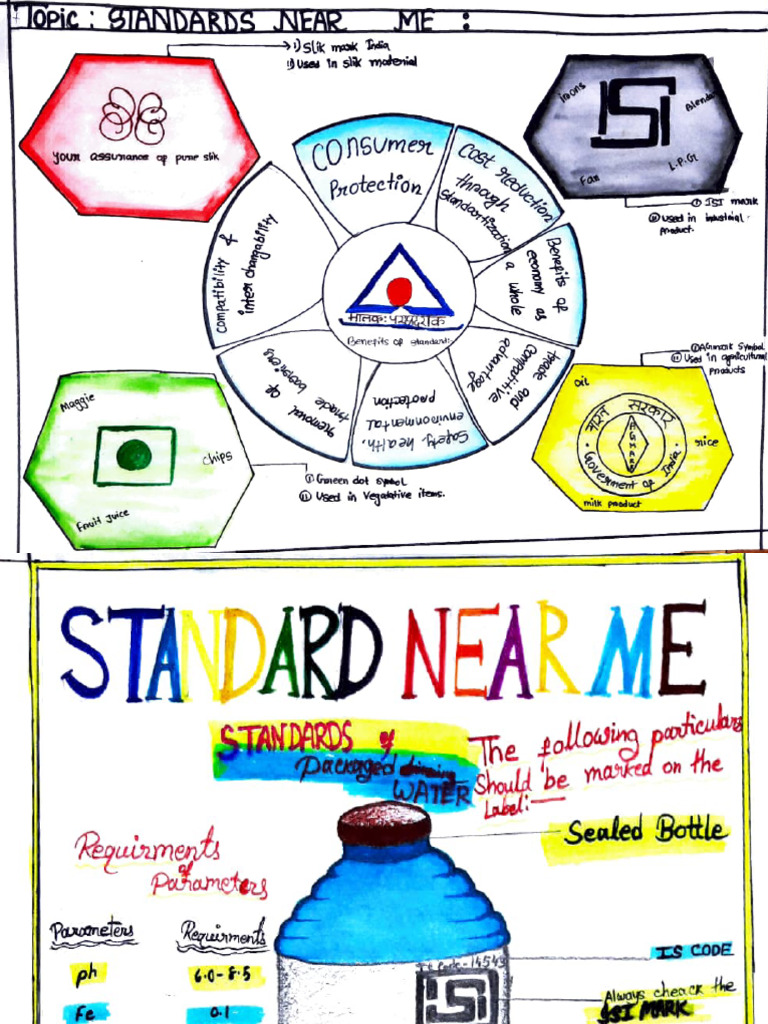 Topic : STANDARDS NEAR ME :
i) Slik mark India
ii) Used in slik material
Your assurance of pure slik
irons
Blender
ISI
Fan
L.P.G
i) ISI mark
ii) Used in industrial
product.
Consumer
Protection
Cost reduction
through
standartization
Benefits of
economy as
a whole
trade and
Compatitive
advantage
Safety, health,
environmental
protection
removal of
trade barriers
compatibility &
inter changability
मानकः पथप्रदर्शकः
Benefits of standard:
i) Agmark Symbol
ii) Used in agricultural
products
oil
भारत सरकार
AGMARK
Government of India
rice
milk product
Maggie
chips
Fruit Juice
i) Green dot symbol
ii) Used in Vegatative items.
STANDARD NEAR ME
STANDARDS of
Packaged
WATER
The following particulars
Should be marked on the
Label:—
Sealed Bottle
Requirments
of
Parameters
Parameters Requirments
ph 6.0-8.5
Fe 0.1
IS CODE
Code-14543
ISI
Always cheack the
ISI MARK